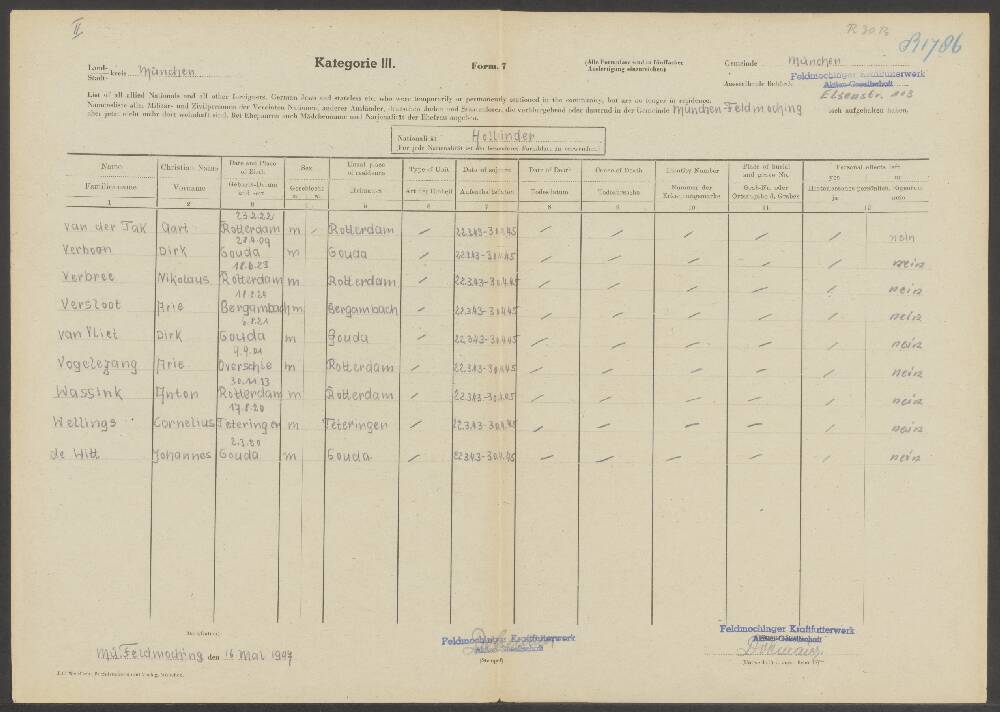 II
R 30 B
R1786
Land-
Stadt- kreis München
Kategorie III.
Form. 7
(Alle Formulare sind in fünffacher
Ausfertigung einzureichen)
Gemeinde München
Ausstellende Behörde Feldmochinger Kraftfutterwerk
Aktien-Gesellschaft
Elsenstr. 203
List of all allied Nationals and all other foreigners, German Jews and stateless etc. who were temporarily or permanently stationed in the community, but are no longer in residence.
Namensliste aller Militär- und Zivilpersonen der Vereinten Nationen, anderer Ausländer, deutschen Juden und Staatenloser, die vorübergehend oder dauernd in der Gemeinde München Feldmoching sich aufgehalten haben,
aber jetzt nicht mehr dort wohnhaft sind. Bei Ehepaaren auch Mädchenname und Nationalität der Ehefrau angeben.
Nationalität Holländer
(Für jede Nationalität ist ein besonderes Formblatt zu verwenden)
Name Christian Name Date and Place of Birth Sex Usual place of residence Type of Unit Date of sojourn Date of Death Cause of Death Identity Number Place of burial and grave No. Personal effects left yes or no
Familienname Vorname Geburts-Datum und -ort Geschlecht Heimatort Art der Einheit Aufenthaltsdaten Todesdatum Todesursache Nummer der Erkennungsmarke Grab-No. oder Ortsangabe d. Grabes Hinterlassene persönlich. Eigentum ja nein
1 2 3 4 5 6 7 8 9 10 11 12
23.2.22
van der Tak Aart Rotterdam m / Rotterdam / 22.3.43-30.4.45 / / / / / nein
28.4.09
Verboon Dirk Gouda m Gouda / 22.3.43-30.4.45 / / / / / nein
18.6.23
Verbree Nikolaus Rotterdam m Rotterdam / 22.3.43-30.4.45 / / / / / nein
Versloot Arie Bergambach m Bergambach / 22.3.43-30.4.45 / / / / / nein
van Vliet Dirk Gouda m Gouda / 22.3.43-30.4.45 / / / / / nein
9.9.01
Vogelezang Arie Overschie m Rotterdam / 22.3.43-30.4.45 / / / / / nein
30.11.13
Wassink Anton Rotterdam m Rotterdam / 22.3.43-30.4.45 / / / / / nein
17.8.20
Wellings Cornelius Teteringen m Teteringen / 22.3.43-30.4.45 / / / / / nein
2.3.20
de Witt Johannes Gouda m Gouda / 22.3.43-30.4.45 / / / / / nein
Mü. Feldmoching den 16 Mai 1947
Feldmochinger Kraftfutterwerk
Aktien-Gesellschaft
(Stempel)
Feldmochinger Kraftfutterwerk
Aktien-Gesellschaft